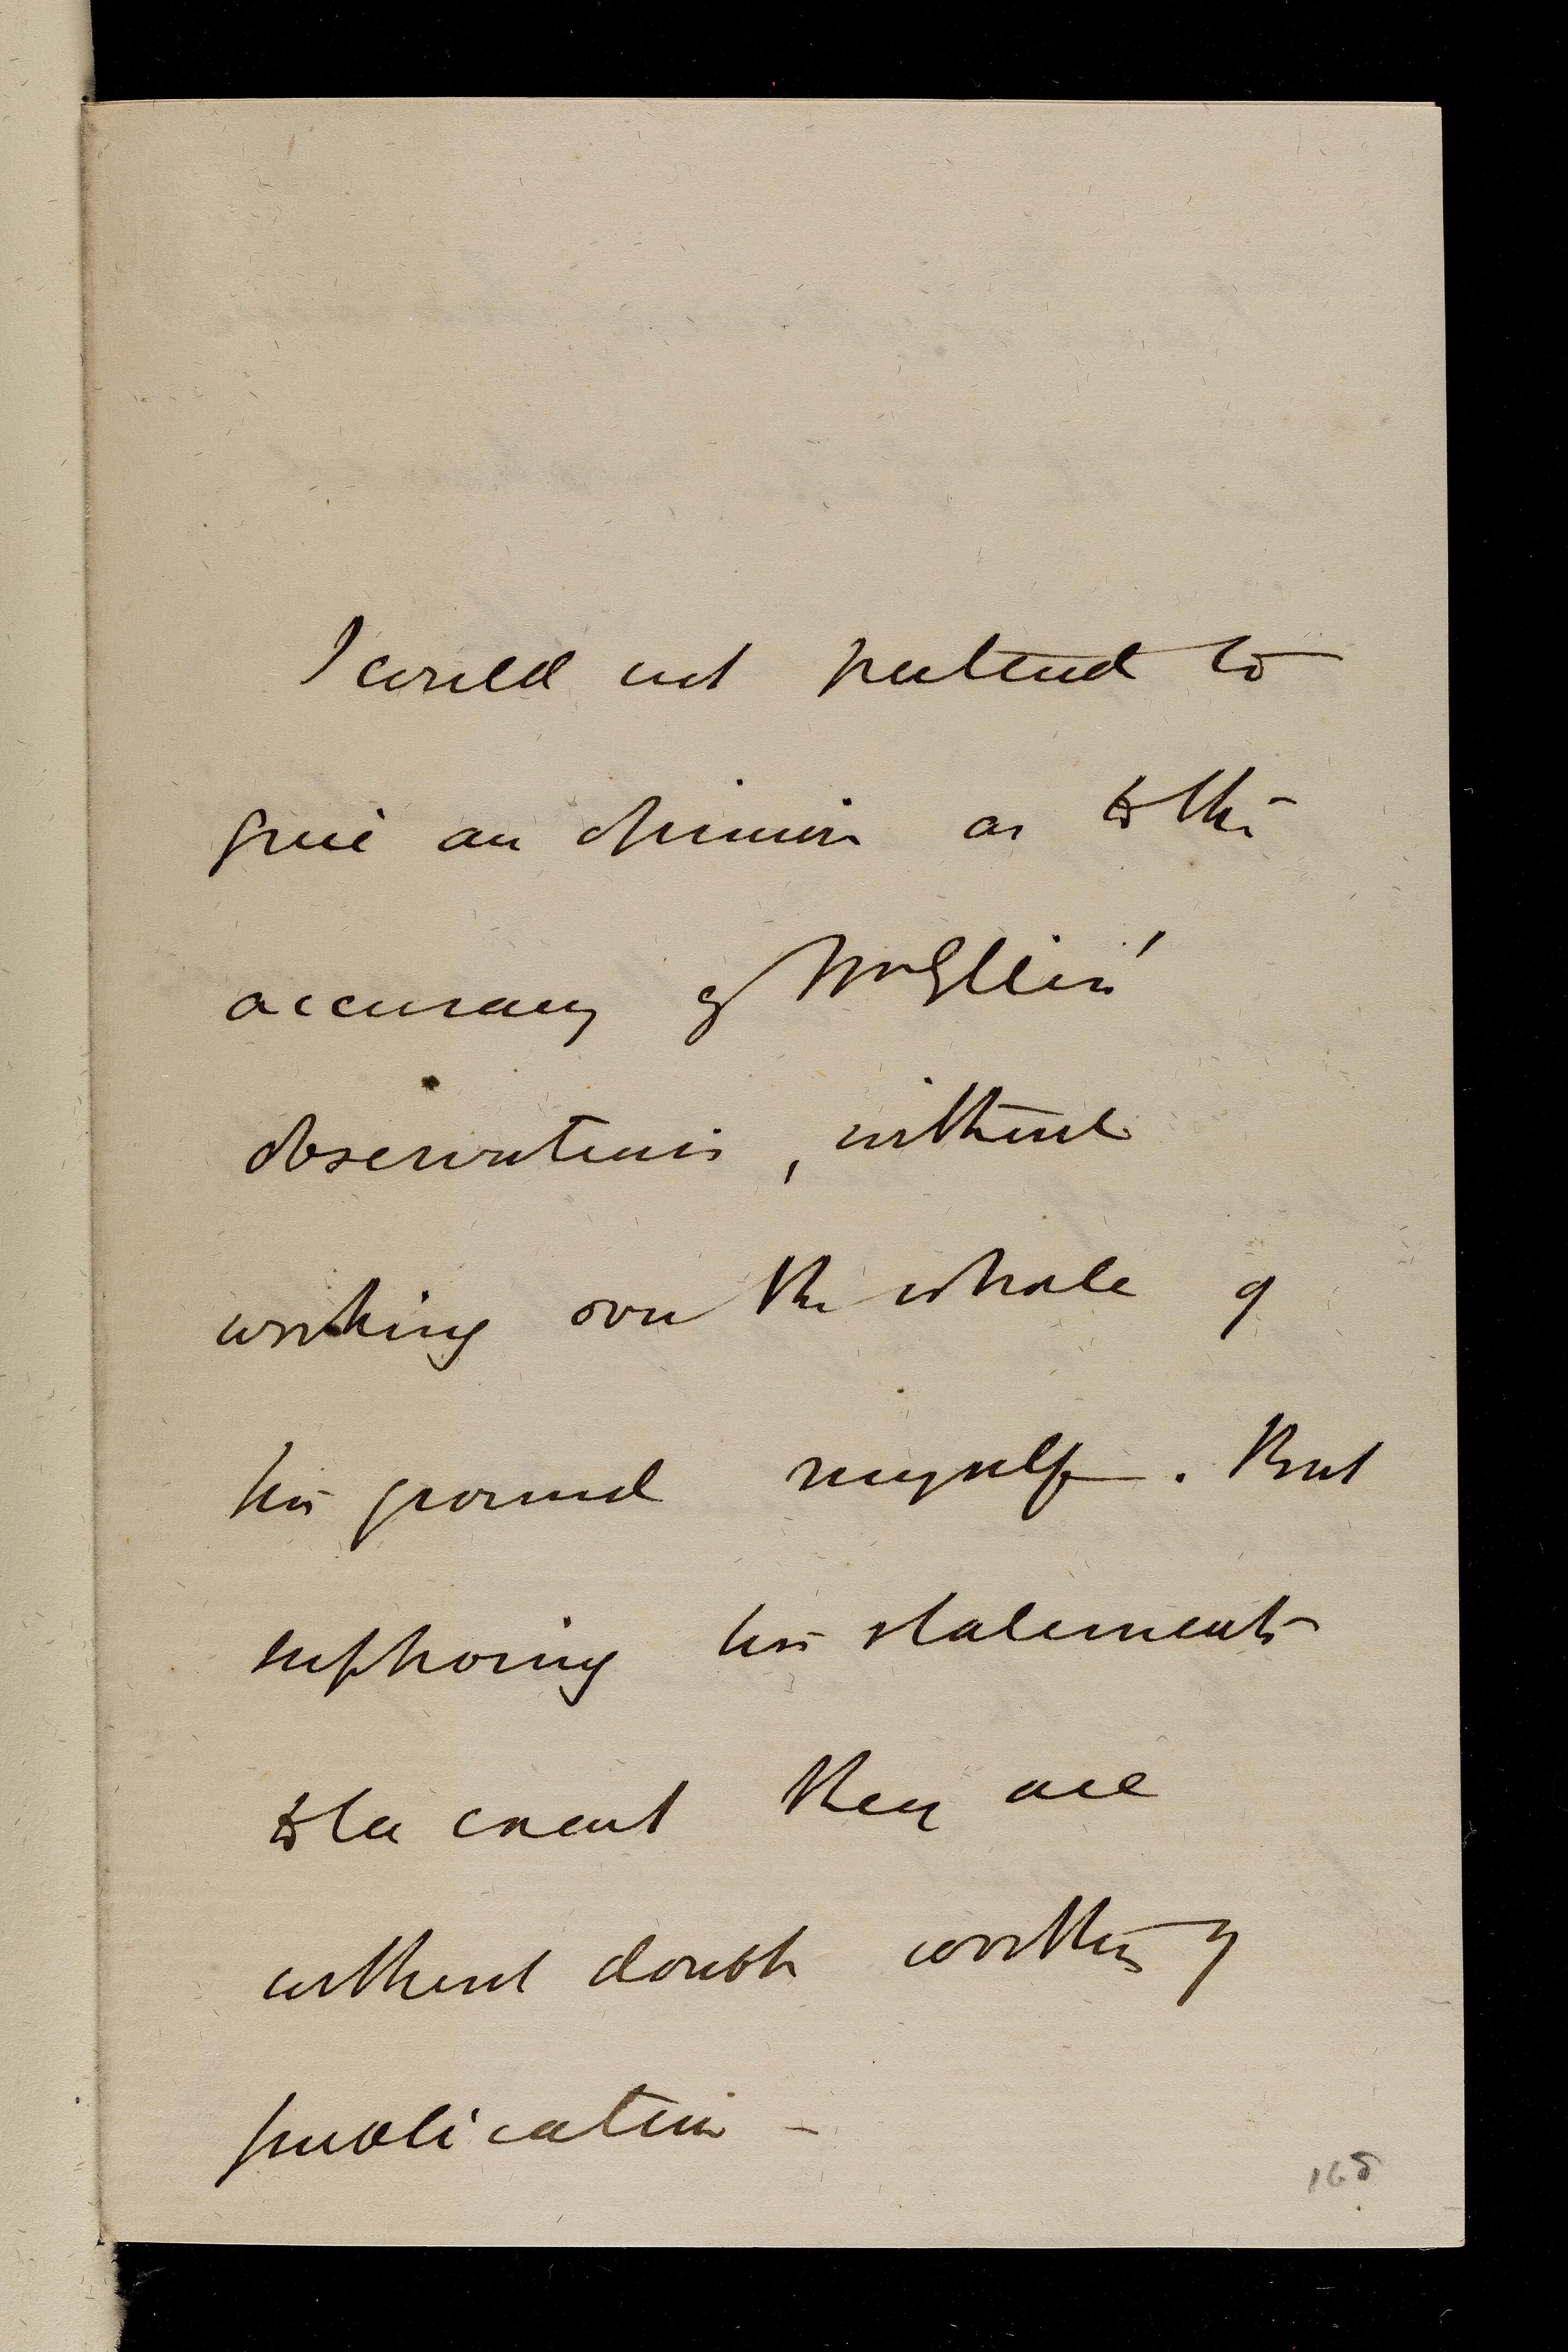 I could not pretend to
give an opinion as to the
accuracy of Mr
observations, without
working over the whole of
his ground myself. But
supposing his statements
to be exact they are
without doubt worthy of
publication –
165